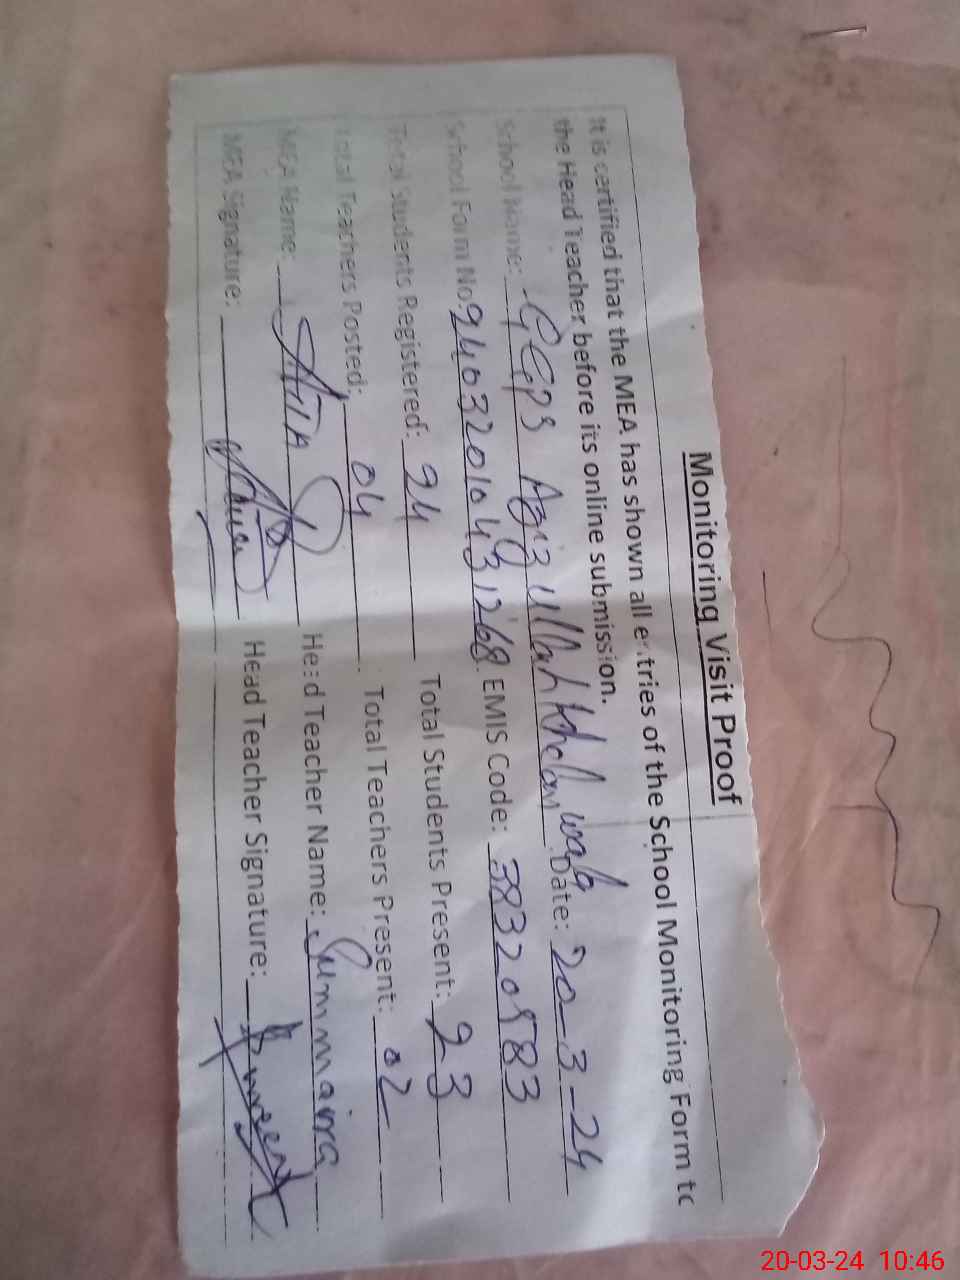 Monitoring Visit Proof
It is certified that the MEA has shown all entries of the School Monitoring Form to
the Head Teacher before its online submission.
School Name: GGPS Aziz ullah Khelan wala Date: 20-3-24
School Form No: 24032010431268 EMIS Code: 38320583
Total Students Registered: 24 Total Students Present: 23
Total Teachers Posted: 04 Total Teachers Present: 02
MEA Name: Head Teacher Name: Summaira
MEA Signature: Head Teacher Signature:
20-03-24 10:46